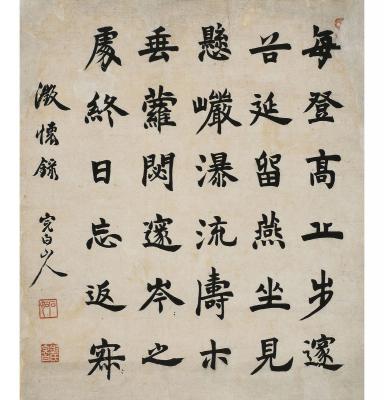 每登高丘步邃
谷延留燕坐見
懸巗瀑流壽木
垂蘿閟邃岑之
處終日忘返寂
澂懷錄 完白山人